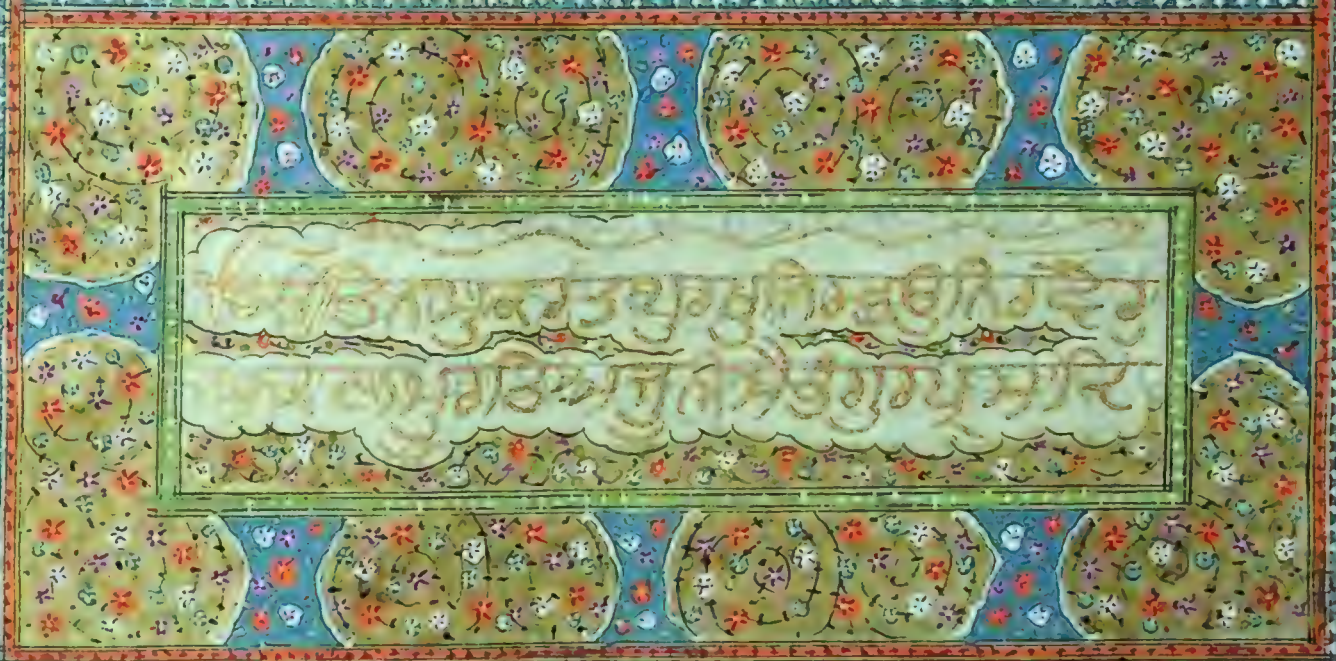 ੴ ਸਤਿਨਾਮੁਕਰਤਾਪੁਰਖੁਨਿਰਭਉਨਿਰਵੈਰੁ
ਅਕਾਲਮੂਰਤਿਅਜੂਨੀਸੈਭੰਗੁਰਪ੍ਰਸਾਦਿ